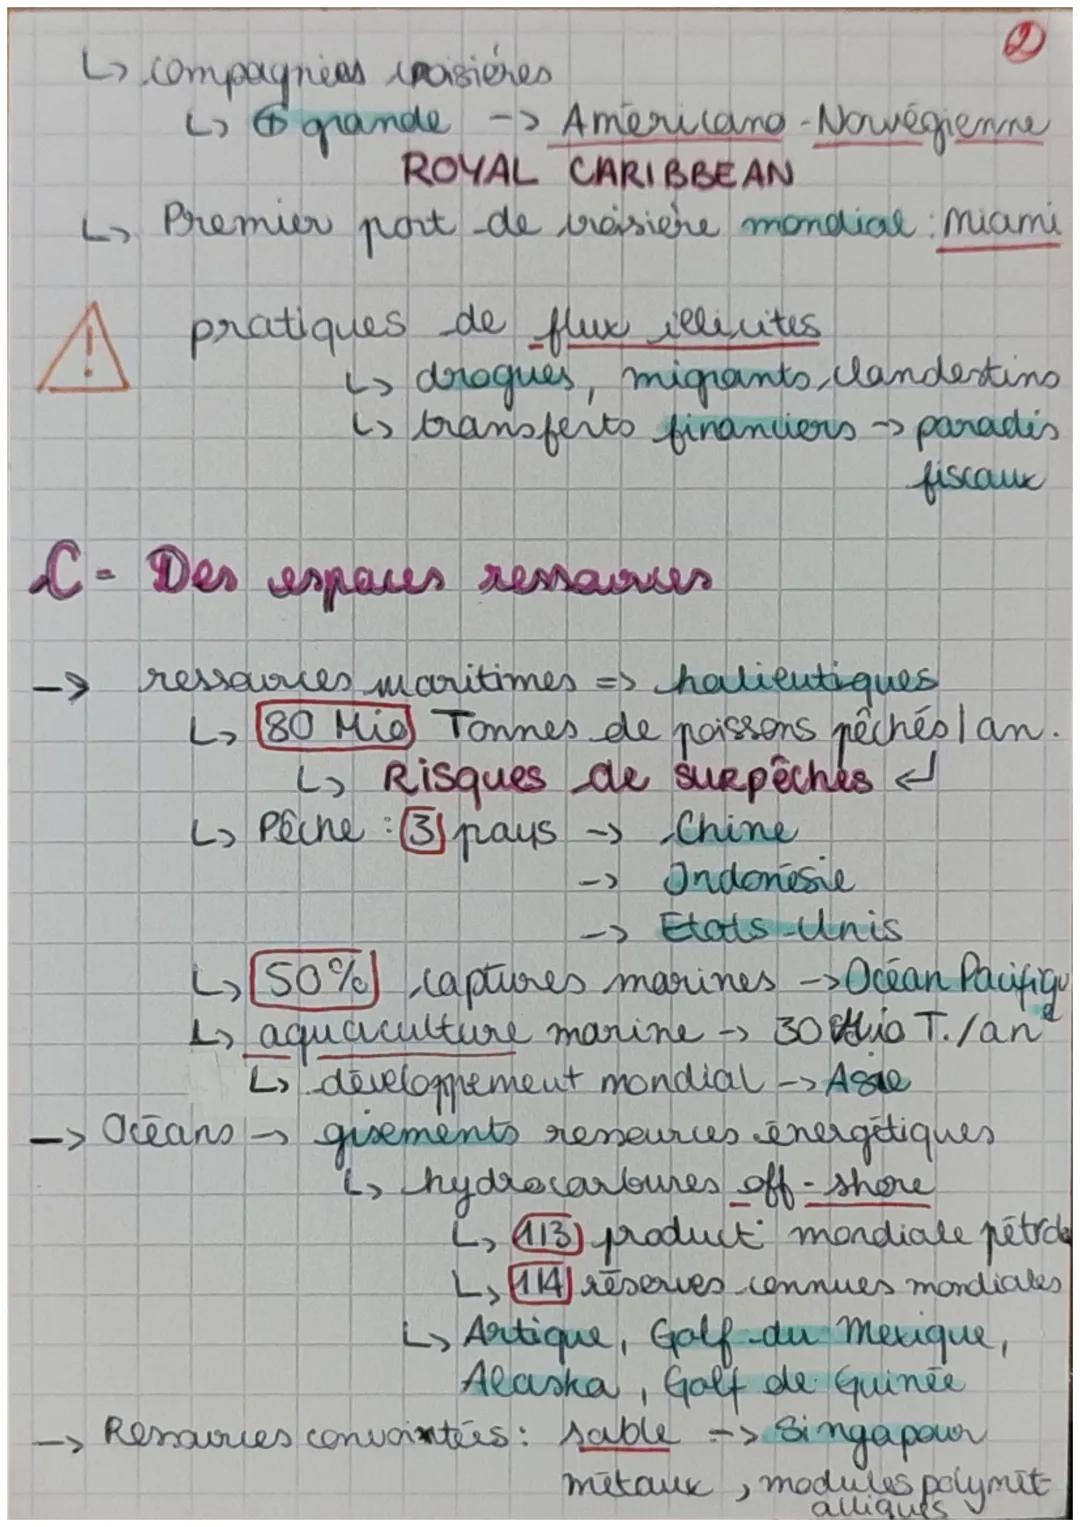 ②
↳ compagnies croisières
↳ ⊕ grande -> Américano-Norvégienne
ROYAL CARIBBEAN
↳ Premier port de croisière mondial : Miami
! pratiques de flux illicites
↳ drogues, migrants, clandestins
↳ transferts financiers -> paradis
fiscaux
C- Des espaces ressources
-> ressources maritimes => halieutiques
↳ 80 Mio Tonnes de poissons pêchés/an.
↳ Risques de surpêches ↵
↳ Pêche : 3 pays -> Chine
-> Indonésie
-> Etats-Unis
↳ 50% captures marines -> Océan Pacifique
↳ aquaculture marine -> 30 Mio T./an
↳ développement mondial -> Asie
-> Océans -> gisements ressources énergétiques
↳ hydrocarbures off-shore
↳ 1/3 product° mondiale pétrole
↳ 1/4 réserves connues mondiales
↳ Artique, Golf du Mexique,
Alaska, Golf de Guinée
-> Ressources convointées : sable -> Singapour
métaux, modules polymét-
alliques